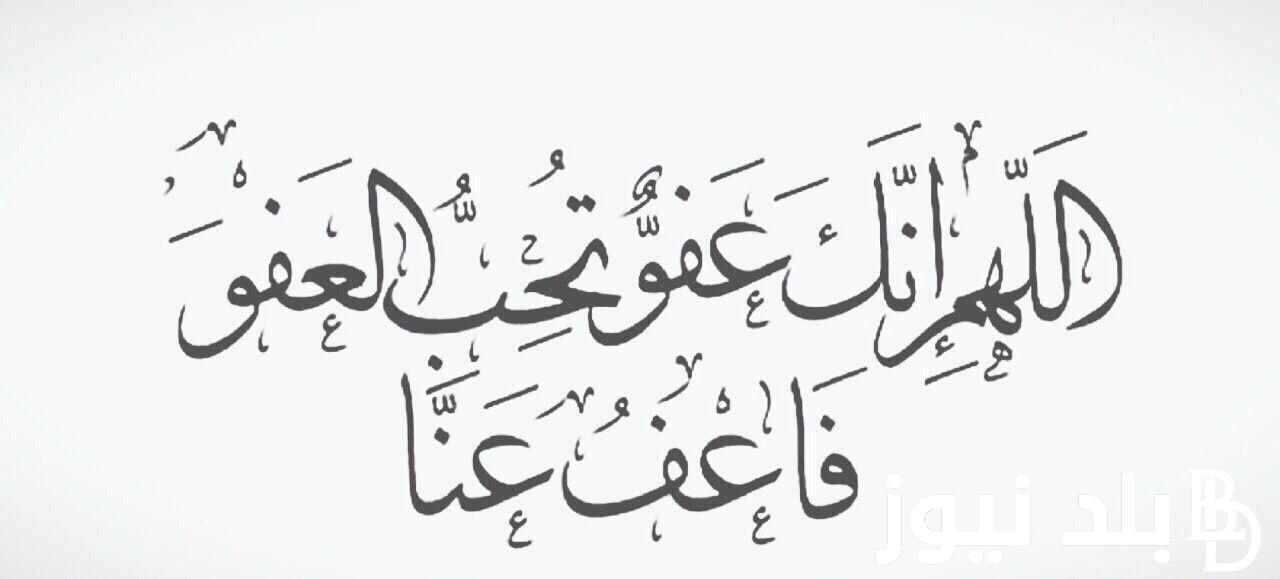 اللَّهُمَّ إِنَّكَ عَفُوٌّ تُحِبُّ الْعَفْوَ
فَاعْفُ عَنَّا
بلد نيوز BLD